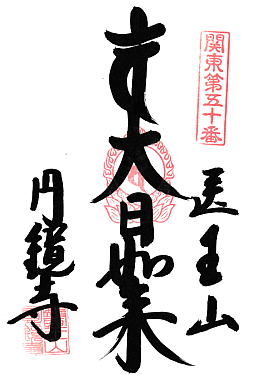 関東第五十番
医王山
大日如来
円鏡寺